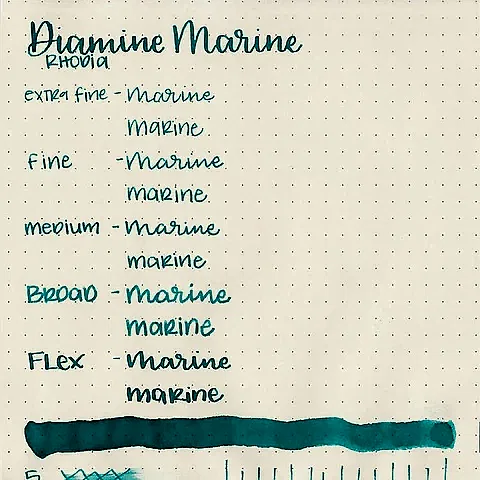 Diamine Marine
RHODIA
extra fine - Marine
marine
fine - Marine
marine
medium - Marine
marine
BROAD - Marine
marine
FLex - Marine
marine